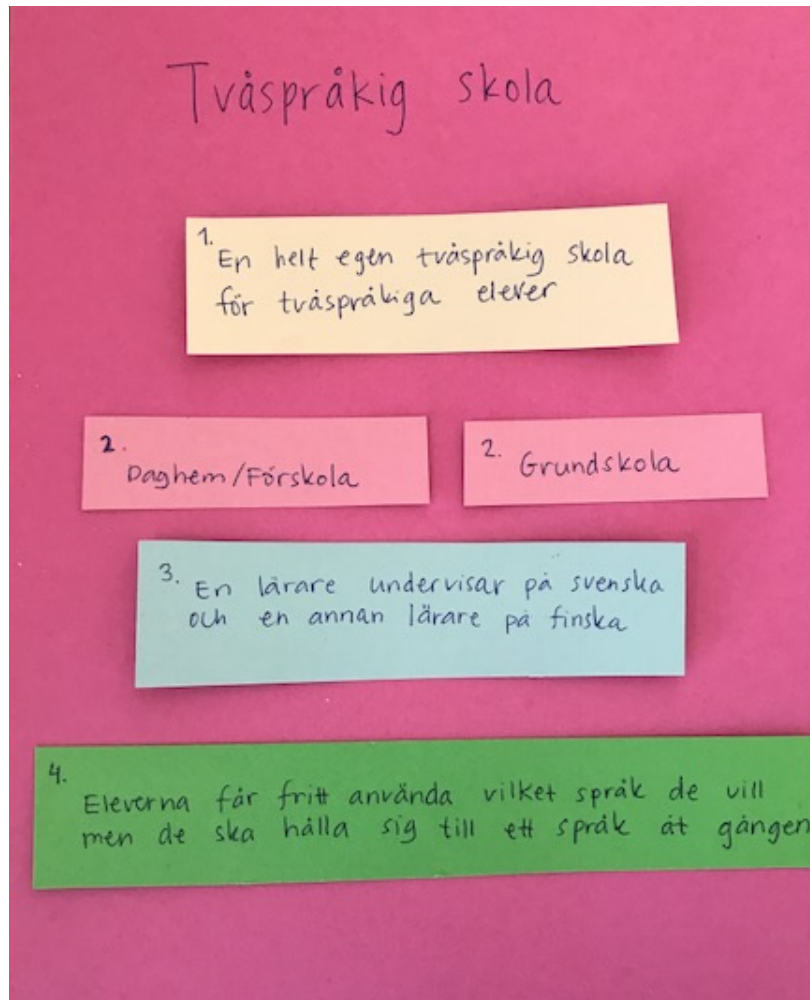 Tvåspråkig skola
1.
En helt egen tvåspråkig skola
för tvåspråkiga elever
2.
Daghem/Förskola
2.
Grundskola
3.
En lärare undervisar på svenska
och en annan lärare på finska
4.
Eleverna får fritt använda vilket språk de vill
men de ska hålla sig till ett språk åt gången